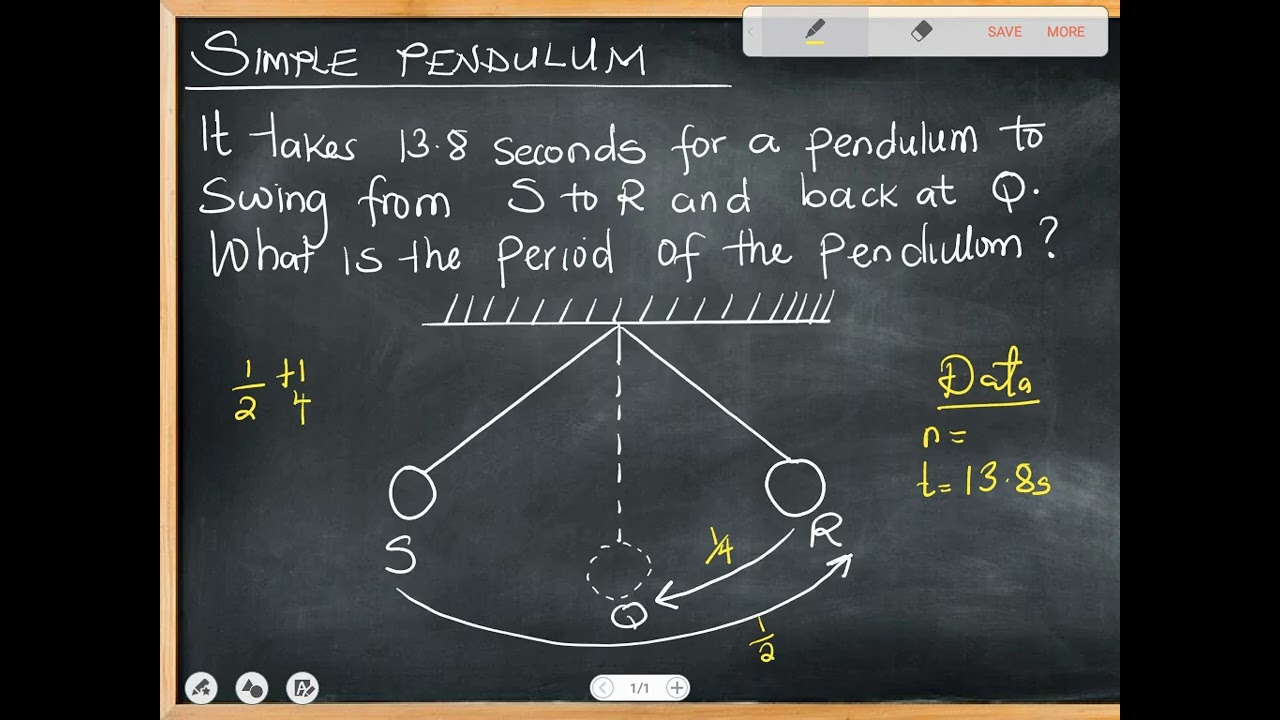 SAVE MORE
SIMPLE PENDULUM
It takes 13.8 seconds for a pendulum to
Swing from S to R and back at Q.
What is the period of the pendulum?
1/2 + 1/4
Data
n =
t = 13.8s
S
R
1/4
Q
1/2
1/1